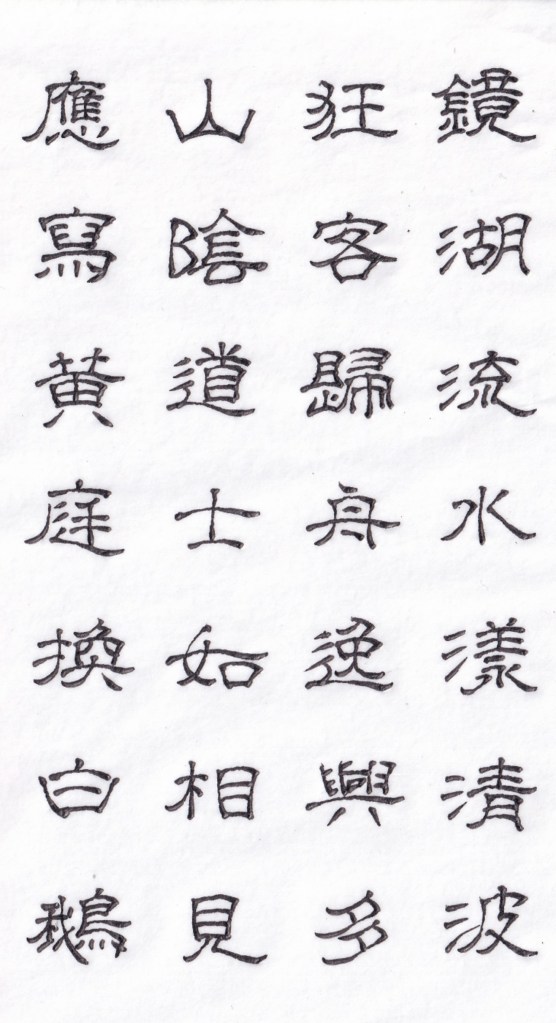 鏡湖流水漾清波
狂客歸舟逸興多
山陰道士如相見
應寫黄庭換白鵝